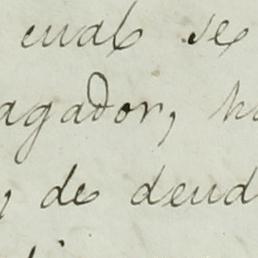 cual se
agador, h
de deud